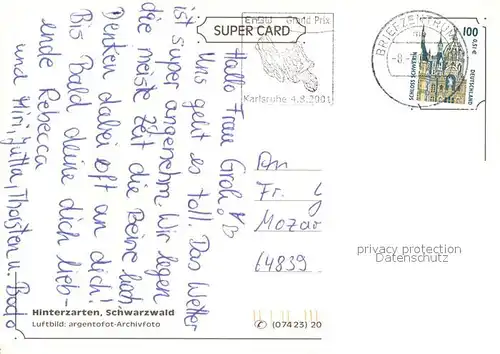 SUPER CARD
EnBW Grand Prix
Karlsruhe 4.8.2001
BRIEFZENTRUM
100
0,51 €
SCHLOSS SCHWERIN
DEUTSCHLAND
Hallo Frau Groh!
Uns geht es toll. Das Wetter
ist super angenehm. Wir legen
die meiste Zeit die Beine hoch.
Denken dabei oft an dich!
Bis Bald deine dich lieb-
ende Rebecca
und Miri, Jutta, Thorsten u. Bodo.
An
Fr.
Mozar
64839
privacy protection
Datenschutz
Hinterzarten, Schwarzwald
Luftbild: argentofot-Archivfoto
(074 23) 20